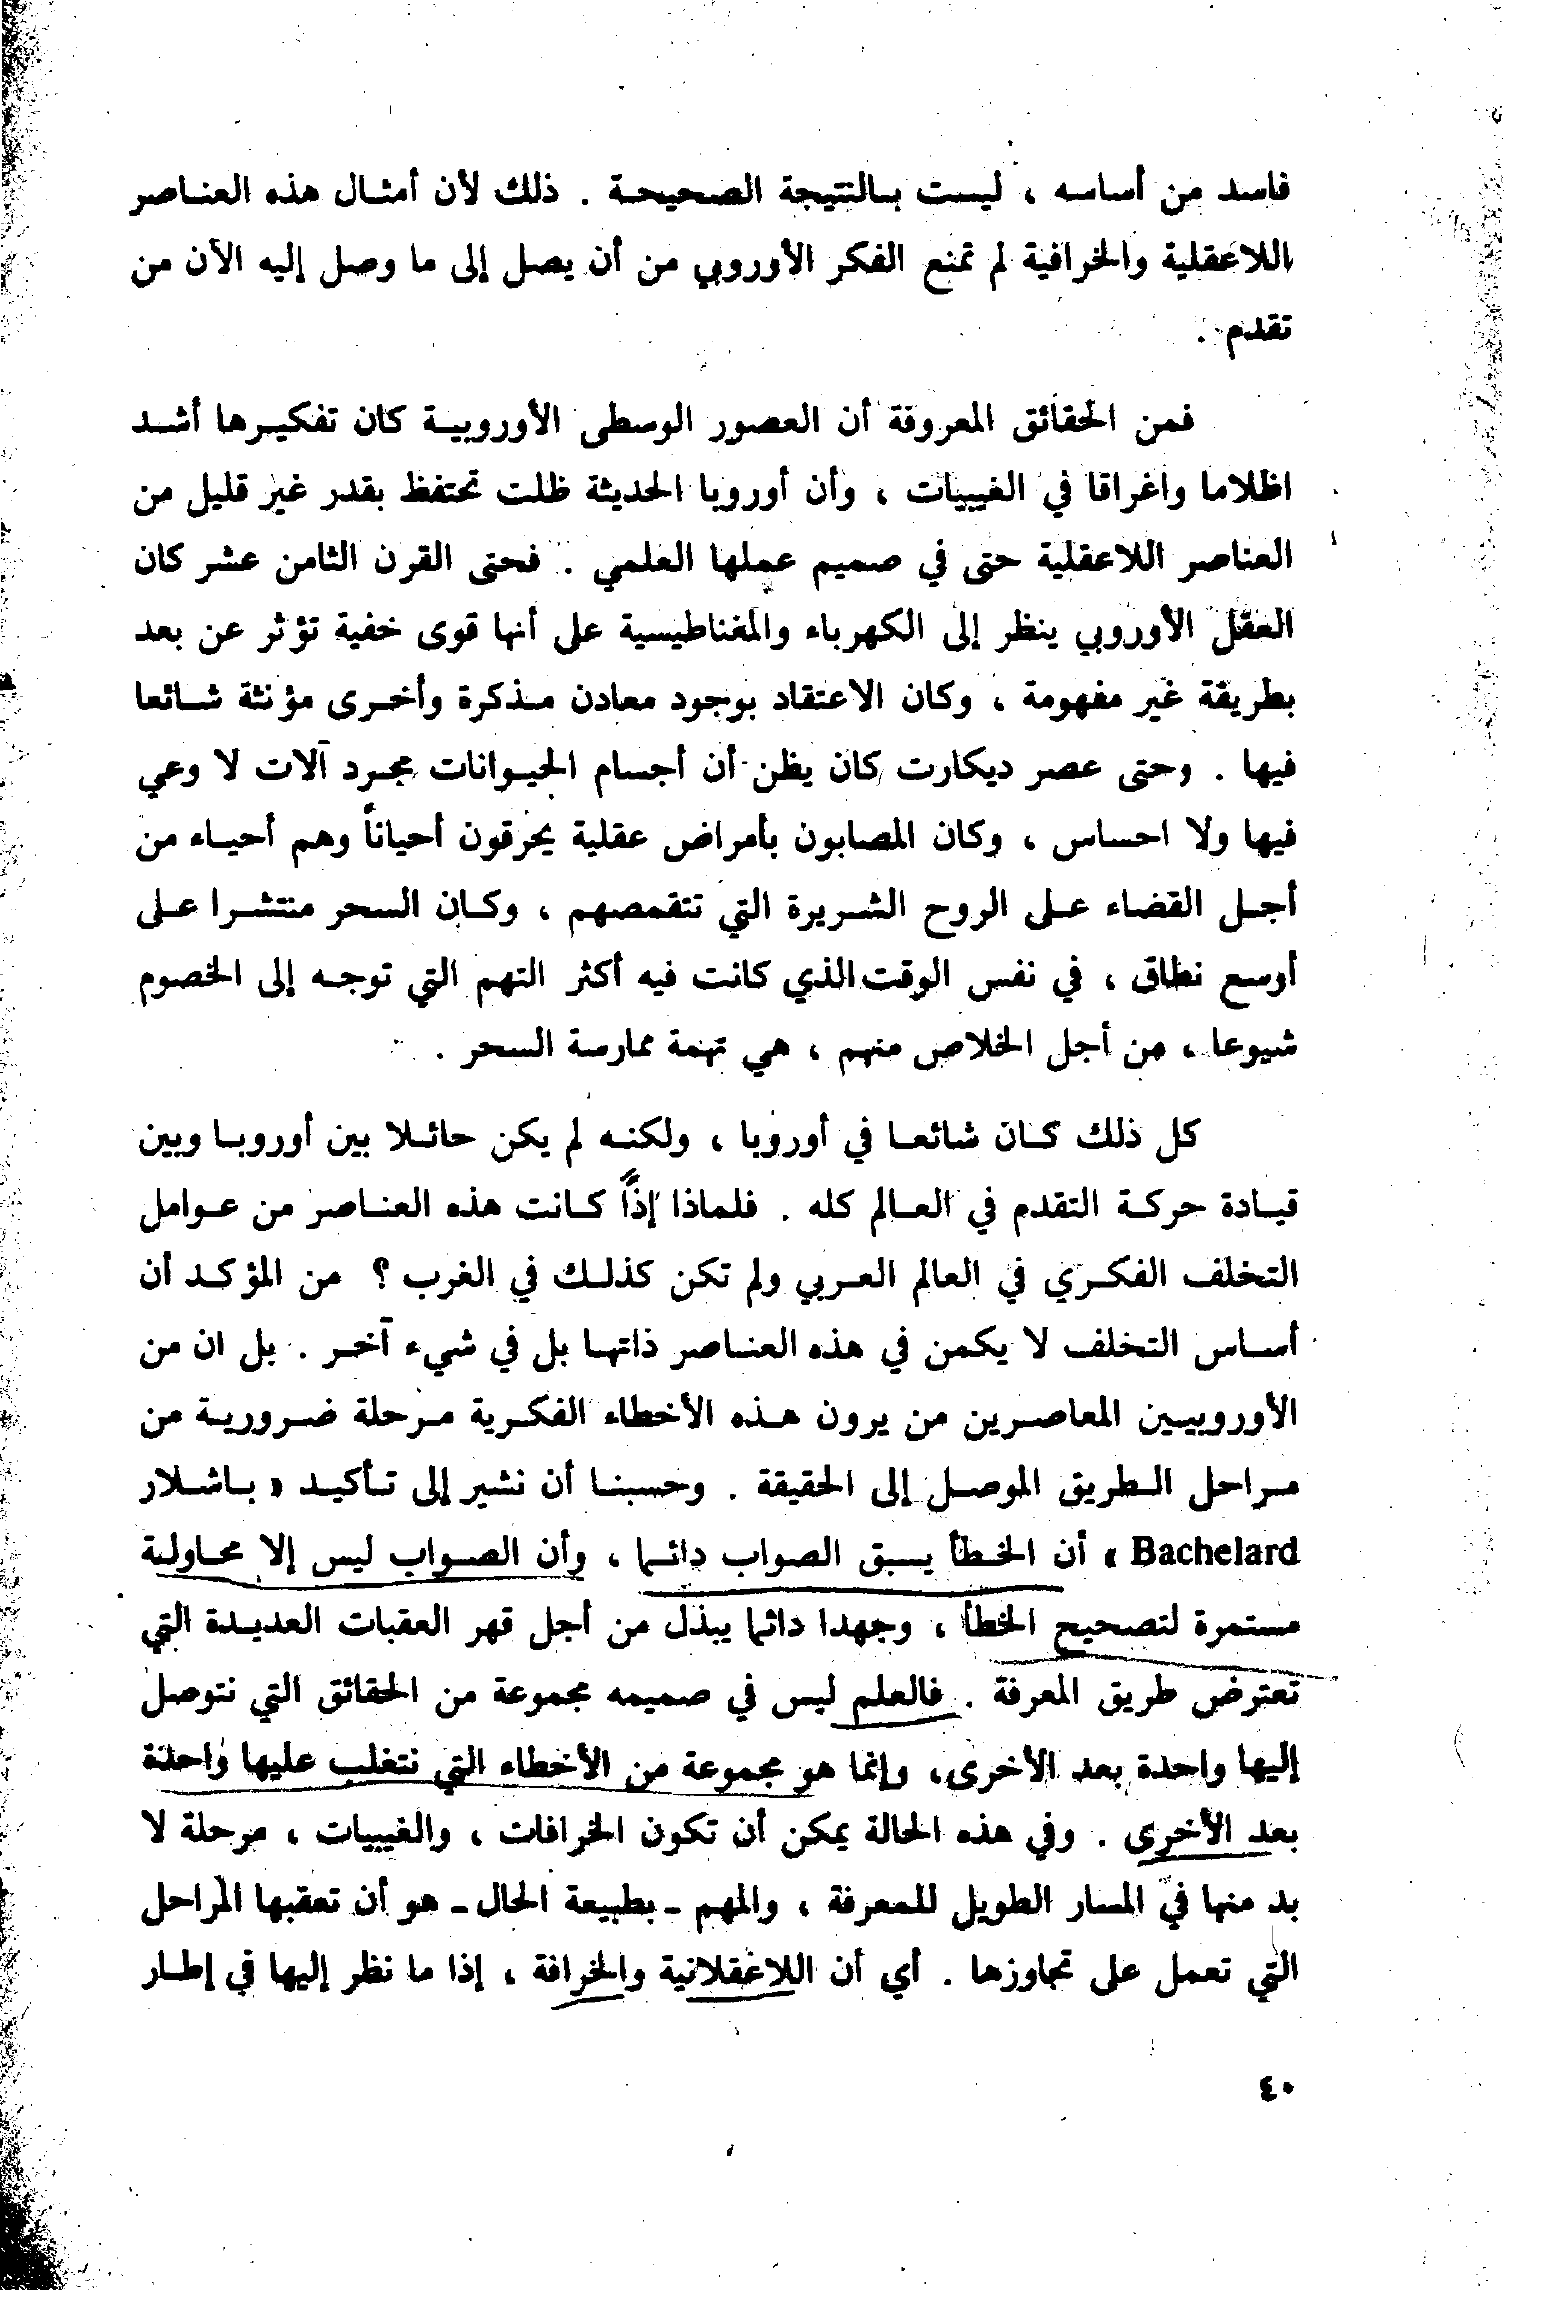 فاسد من أساسه ، ليست بالنتيجة الصحيحة . ذلك لأن أمثال هذه العناصر
اللاعقلية والخرافية لم تمنع الفكر الأوروبي من أن يصل إلى ما وصل إليه الآن من
تقدم .
فمن الحقائق المعروفة أن العصور الوسطى الأوروبية كان تفكيرها أشد
اظلاما واغراقا في الغيبيات ، وأن أوروبا الحديثة ظلت تحتفظ بقدر غير قليل من
العناصر اللاعقلية حتى في صميم عملها العلمي . فحتى القرن الثامن عشر كان
العقل الأوروبي ينظر إلى الكهرباء والمغناطيسية على أنها قوى خفية تؤثر عن بعد
بطريقة غير مفهومة ، وكان الاعتقاد بوجود معادن مذكرة وأخرى مؤنثة شائعا
فيها . وحتى عصر ديكارت كان يظن أن أجسام الحيوانات مجرد آلات لا وعي
فيها ولا احساس ، وكان المصابون بأمراض عقلية يحرقون أحياناً وهم أحياء من
أجل القضاء على الروح الشريرة التي تتقمصهم ، وكان السحر منتشرا على
أوسع نطاق ، في نفس الوقت الذي كانت فيه أكثر التهم التي توجه إلى الخصوم
شيوعا ، من أجل الخلاص منهم ، هي تهمة ممارسة السحر .
كل ذلك كان شائعا في أوروبا ، ولكنه لم يكن حائلا بين أوروبا وبين
قيادة حركة التقدم في العالم كله . فلماذا إذاً كانت هذه العناصر من عوامل
التخلف الفكري في العالم العربي ولم تكن كذلك في الغرب ؟ من المؤكد أن
أساس التخلف لا يكمن في هذه العناصر ذاتها بل في شيء آخر . بل ان من
الأوروبيين المعاصرين من يرون هذه الأخطاء الفكرية مرحلة ضرورية من
مراحل الطريق الموصل إلى الحقيقة . وحسبنا أن نشير إلى تأكيد « باشلار
Bachelard » أن الخطأ يسبق الصواب دائما ، وأن الصواب ليس إلا محاولة
مستمرة لتصحيح الخطأ ، وجهدا دائما يبذل من أجل قهر العقبات العديدة التي
تعترض طريق المعرفة . فالعلم ليس في صميمه مجموعة من الحقائق التي نتوصل
إليها واحدة بعد الأخرى، وإنما هو مجموعة من الأخطاء التي نتغلب عليها واحدة
بعد الأخرى . وفي هذه الحالة يمكن أن تكون الخرافات ، والغيبيات ، مرحلة لا
بد منها في المسار الطويل للمعرفة ، والمهم - بطبيعة الحال - هو أن تعقبها المراحل
التي تعمل على تجاوزها . أي أن اللاعقلانية والخرافة ، إذا ما نظر إليها في إطار
٤٠